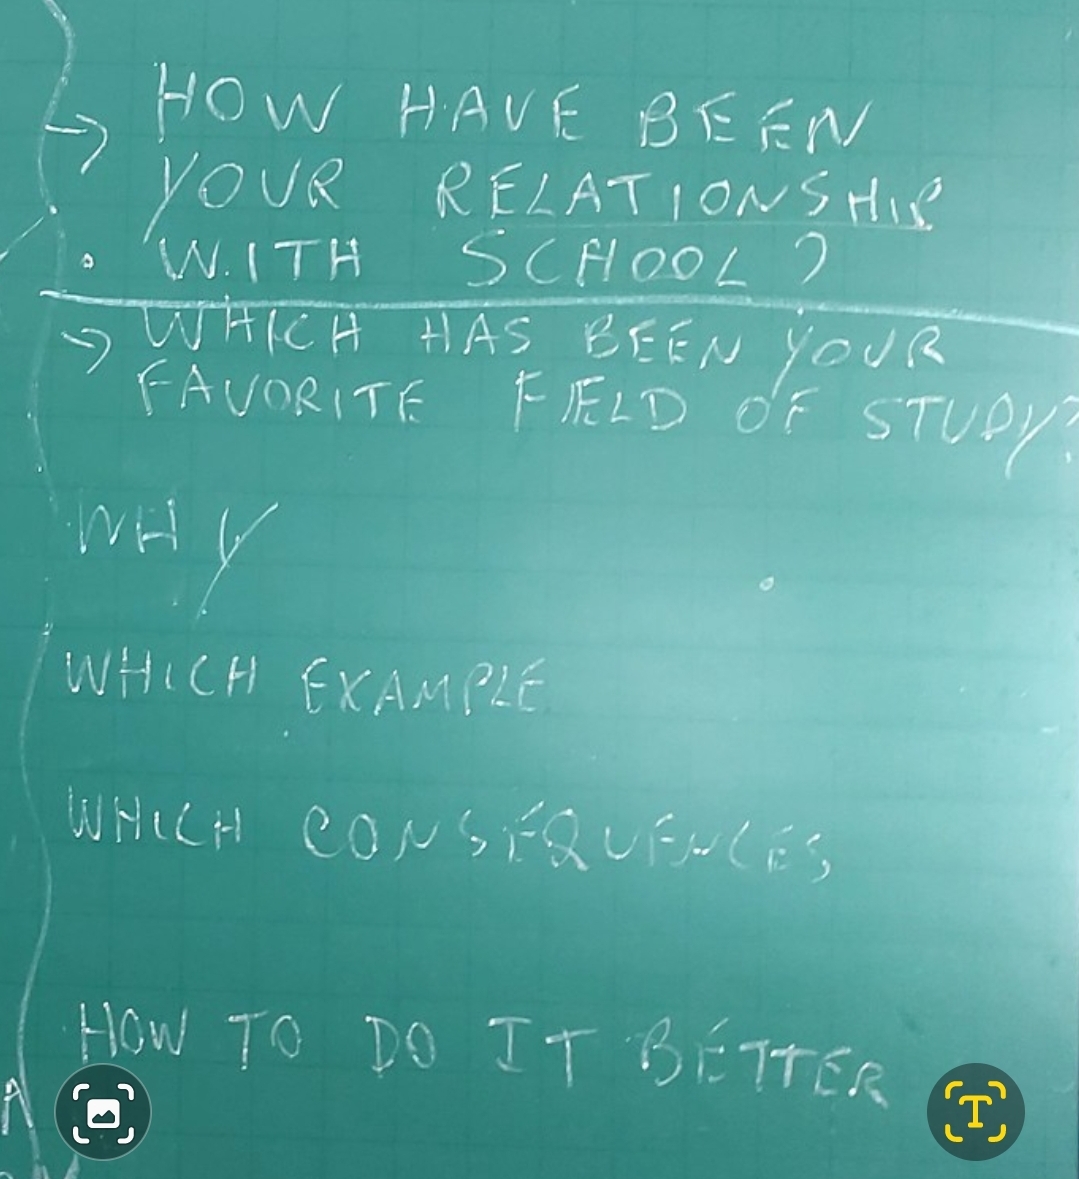 → HOW HAVE BEEN
YOUR RELATIONSHIP
. WITH SCHOOL?
→ WHICH HAS BEEN YOUR
FAVORITE FIELD OF STUDY?
WHY
WHICH EXAMPLE
WHICH CONSEQUENCES
HOW TO DO IT BETTER
A
T